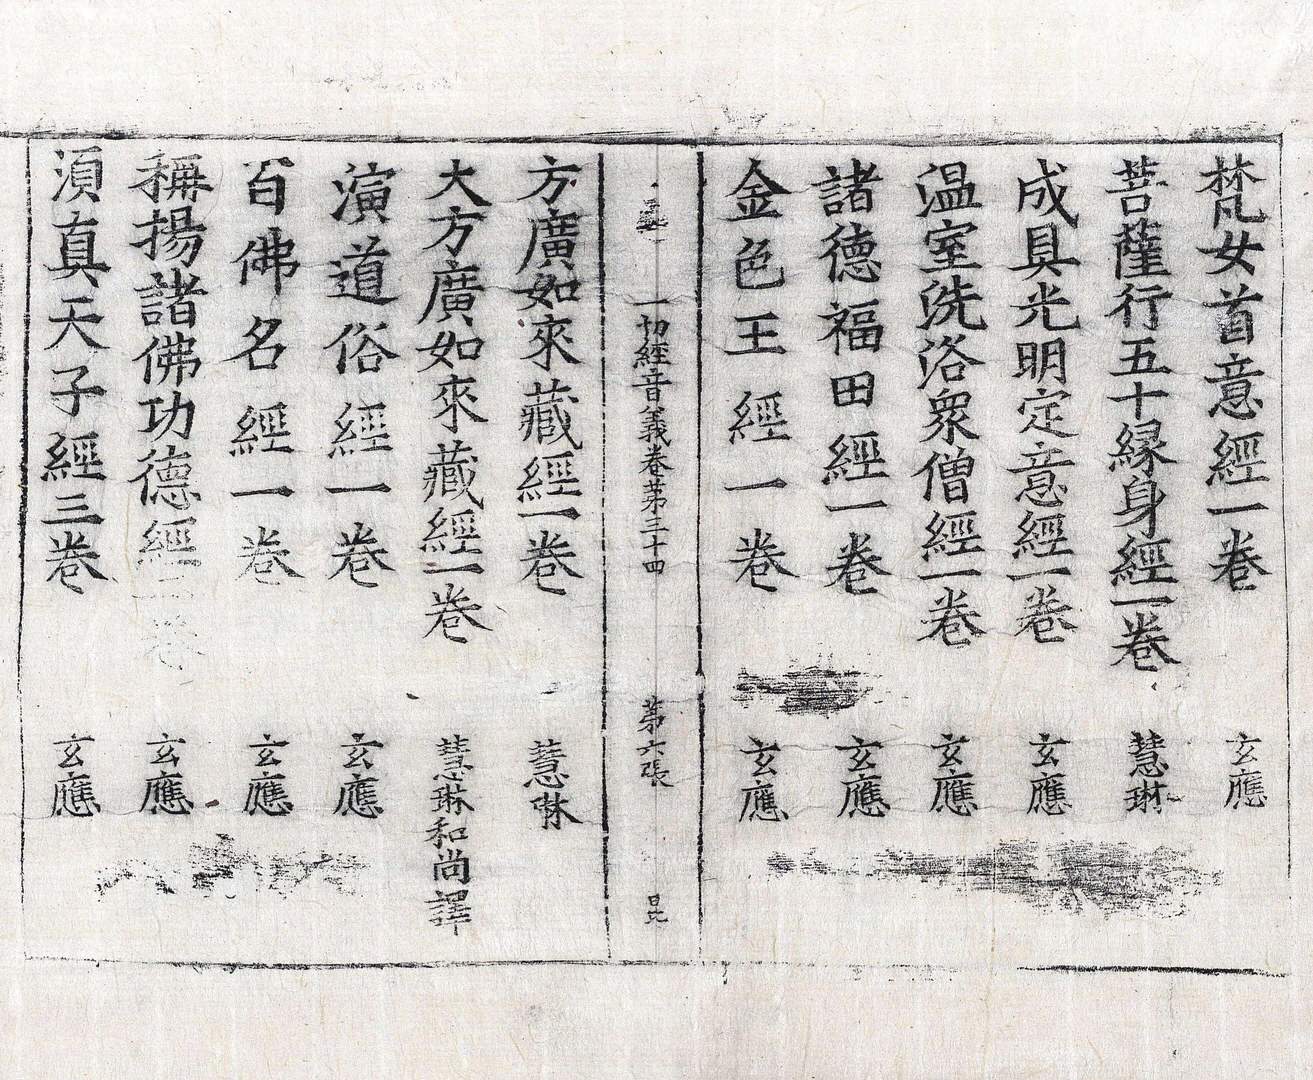 梵女首意經一卷 玄應
菩薩行五十緣身經一卷 慧琳
成具光明定意經一卷 玄應
温室洗浴衆僧經一卷 玄應
諸德福田經一卷 玄應
金色王經一卷 玄應
一切經音義卷苐三十四 苐六張
方廣如來藏經一卷 慧琳
大方廣如來藏經一卷 慧琳和尚譯
演道俗經一卷 玄應
百佛名經一卷 玄應
稱揚諸佛功德經三卷 玄應
湏真天子經三卷 玄應